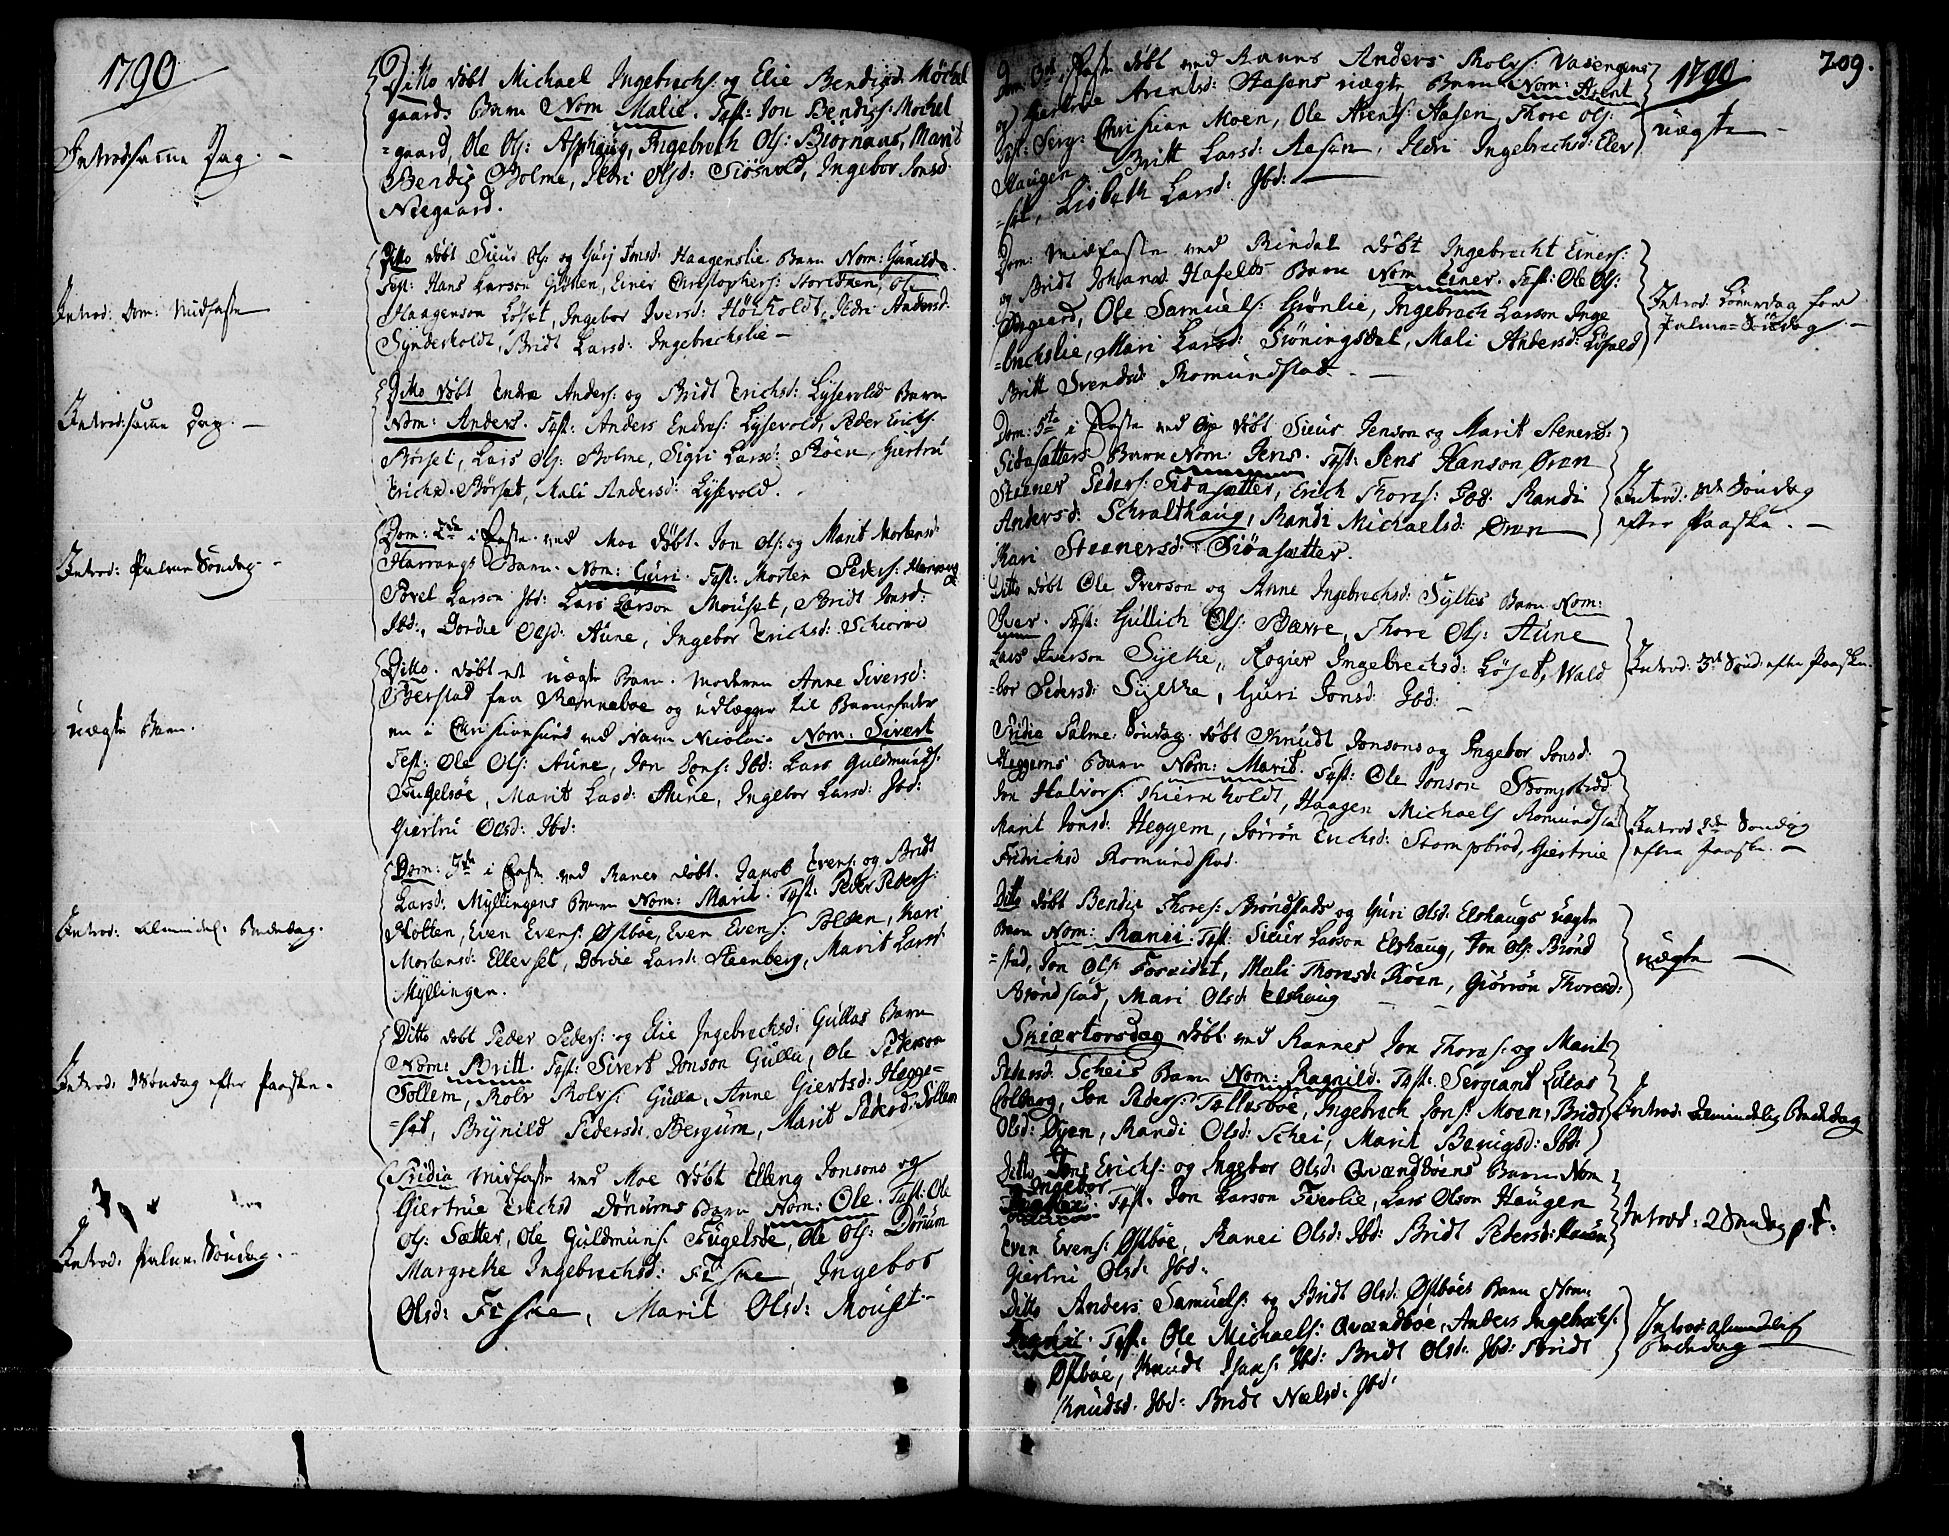 1790
Ditto döbt Michael Ingebrechs: og Elie Bendigsd: Möchel
gaards Barn Nom Malie. Test: Jon Bendigs: Mochel
=gaard, Ole Ols: Asphaug, Ingebrech Ols: Biörnaas, Marit
Bendigs Bolme, Ildri Olsd: Siösvold, Ingebor Jonsd
Neegaard.
Introd: samme Dag. —
Ditto döbt Siur Ols: og Guri Jonsd: Haagenslie Barn Nom: Gunild.
Test: Hans Larson, Einer Christophers:
Haagenson Löset, Ingebor Iversd: Höiholdt, Ildri Andersd:
Synderholdt, Bridt Larsd: Ingebrechslie —
Introd: Dom: Midfaste
Ditto döbt Endre Anders: og Bridt Erichsd: Lysevolds Barn
Nom: Anders. Test: Anders Endres: Lysevold, Peder Erichs:
Börset, Lars Ols: Bolme, Sigri Larsd: Röen, Giertru
Erichsd: Börset, Mali Andersd: Lysevold.
Introd: samme Dag. —
Dom: 2da i Faste ved Moe döbt. Jon Ols: og Marit Mortensd:
Harrangs Barn. Nom: Guri. Test: Morten Peders: Harrang
Povel Larson Ibd: Lars Larson Mouset, Bridt Jonsd:
Ibd:, Dordie Olsd: Aune, Ingebor Erichsd:
Introd: Palme Söndag. -
Ditto. döbt et uægte Barn. Moderen Anne Siversd:
Berstad fra Renneboe og udlægger til Barnefader
en i Christiansund ved Navn Nicolai. Nom: Sivert
Test: Ole Ols: Aune, Jon Jons: Ibd: Lars Guldmunds:
Fugelsöe, Marit Lasd: Aune, Ingebor Larsd: Ibd:
Giertru Olsd: Ibd:
uægte Barn.
Dom: 3tia i Faste ved Ranes döbt. Jacob Evens: og Bridt
Larsd: Myllingens Barn Nom: Marit. Test: Peder Peders:
Holten, Even Evens: Östböe, Even Evens: Polden, Kari
Mortensd: Ellevset, Dordie Larsd: Steenberg, Marit Larsd:
Myllingen.
Introd: Almindel: Bededag.
Ditto döbt Peder Peders: og Elie Ingebrechsd: Gullas Barn
Nom: Britt. Test: Sivert Jonson Gulla, Ole Pederson
Sollem, Rolv Rolvs: Gulla, Anne Giertsd: Hegge=
=set, Brynild Pedersd: Bergum, Marit Pedersd: Sollem
Introd: Mondag efter Paaske.
Tridia Midfaste ved Moe döbt Elling Jonsons og
Giertrue Erichsd Dönums Barn Nom: Ole. Test: Ole
Ols: Sætter, Ole Guldmuns: Fugelsöe, Ole Ols: Dönum
Margrethe Ingebrechsd: Fiske, Ingebor
Olsd: Feske, Marit Olsd: Mouset —
Introd: Palme Söndag. -
1790
209.
Dom: 3tia i Faste döbt ved Rannes Anders Rolvs: Vasengens
og Giertrue Arentsd: Aasens uægte Barn Nom: Arent
Test: Serg: Christian Moen, Ole Arents: Aasen, Thore Ols:
Haugen, Britt Larsd: Aasen, Ildri Ingebrechsd: Elev
=set, Lisbeth Larsd: Ibd:
uægte —
Dom: Midfaste ved Rindal döbt Ingebrecht Einers:
og Bridt Johansd: Hafelds Barn Nom Einer. Test: Ole Ols:
Ole Samuels: Grönlie, Ingebrech Larson Inge
=brechslie, Mari Larsd: Siöningsdal, Mali Andersd: Löfald
Britt Svendsd: Romundstad. —
Introd: Löverdag före
Palme=Söndag —
Dom: 5te i Faste ved Öye döbt Siur Jenson og Marit Stenersd:
Siöasætters Barn Nom: Jens. Test: Jens Hanson Ören
Steener Peders: Siöasætter, Erich Thores: Ibd: Randi
Andersd: Schralthaug, Randi Michaelsd: Ören
Kari Steenersd: Siöasætter.
Introd: Söndag
efter Paaske. —
Ditto döbt Ole Iverson og Anne Ingebrechsd: Syltes Barn Nom:
Iver. Test: Gullich Ols: Bævre, Thore Ols: Aune
Lars Iverson Sylte, Rogier Ingebrechsd: Löset, Wald
=bor Pedersd: Sylthe, Guri Jonsd: Ibd: —
Introd: 3de Sönd: efter Paaske.
Tridie Palme Söndag döbt Knudt Jonsons og Ingebor Jonsd:
Heggems Barn Nom: Marit. Test: Ole Jonson Stompebröd
Jon Halvors: Skiermholdt, Haagen Michaels Romundstad
Marit Jonsd: Heggem, Jörrön Erichsd: Stompebröd, Giertrue
Fridrichsd Romundstad.
Introd 2de Söndag
efter Paaske. —
Ditto döbt Bendix Thores: Bröndstads og Guri Olsd: Elshaugs uægte
Barn Nom: Ranei. Test: Siur Larson Elshaug, Jon Ols: Brönd
=stad, Jon Ols: Mali Thoresd: Röen, Giörrön Thoresd:
Bröndstad, Mari Olsd: Elshaug
uægte —
Skiærtorsdag döbt ved Rannes Jon Thores: og Marit
Pedersd: Scheis Barn Nom: Ragnild. Test: Sergiant Elias
Solberg, Jon Peders: Tellesböe, Ingebrech Jons: Moen, Bridt
Olsd: Öyen, Randi Olsd: Schei, Marit Bendigsd: Ibd:
Introd: Almindelig Bededag
Ditto Jens Erichs: og Ingebor Olsd: Qvandböens Barn Nom
Ingebor
Test: Jon Larson Tverlie, Lars Olson Haugen
Even Evens: Östböe, Ranei Olsd: Ibd: Bridt Pedersd: Haugen
Giertru Olsd: Ibd:
Introd: 2 Söndag p. P.
Ditto Anders Samuels: og Bridt Olsd: Östböes Barn Nom:
Test: Ole Michaels: Qvandböe, Anders Ingebrechs:
Östböe, Knudt Ibd: Bridt Olsd: Ibd: Bridt
Knudsd: Ibd: Bridt Nelsd: Ibd:
Introd: Almindelig
Bededag